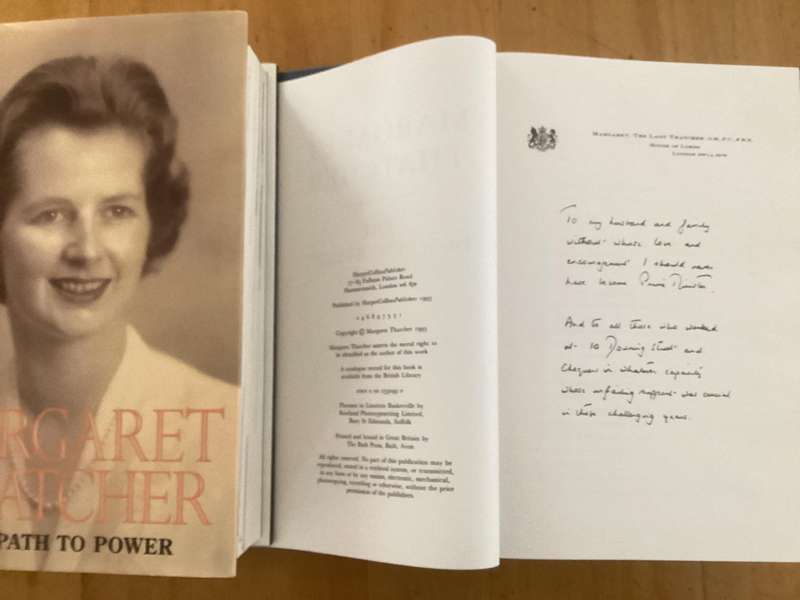 RGARET
ATCHER
PATH TO POWER
HarperCollinsPublishers
77–85 Fulham Palace Road
Hammersmith, London w6 8JB
Published by HarperCollinsPublishers 1993
Copyright © Margaret Thatcher 1993
Margaret Thatcher asserts the moral right to
be identified as the author of this work
A catalogue record for this book is
available from the British Library
Photoset in Linotron Baskerville by
Rowland Phototypesetting Limited,
Bury St Edmunds, Suffolk
Printed and bound in Great Britain by
The Bath Press, Bath, Avon
All rights reserved. No part of this publication may be
reproduced, stored in a retrieval system, or transmitted,
in any form or by any means, electronic, mechanical,
photocopying, recording or otherwise, without the prior
permission of the publishers.
MARGARET, THE LADY THATCHER, O.M., P.C., F.R.S.
HOUSE OF LORDS
LONDON SW1A 0PW
To my husband and family
without whose love and
encouragement I should never
have become Prime Minister.
And to all those who worked
at 10 Downing Street and
Chequers in whatever capacity
whose unfailing support was crucial
in those challenging years.